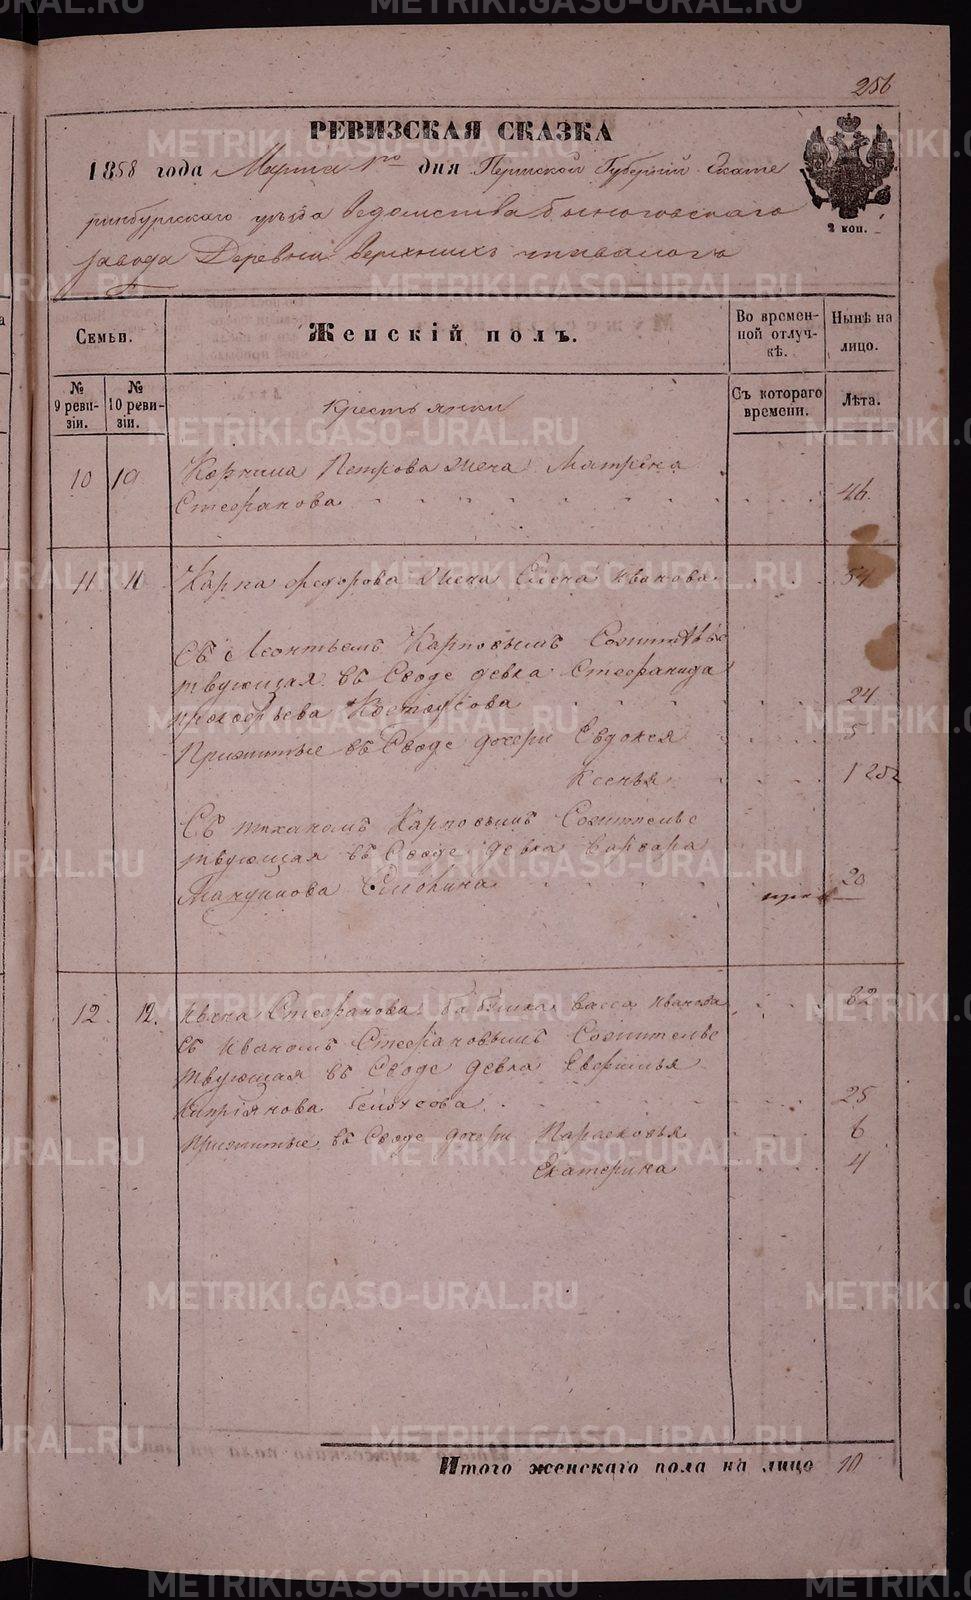 256
РЕВИЗСКАЯ СКАЗКА
1858 года Марта 1го дня Пермской Губернии Екате
ринбургскаго уѣзда Ведомства Быньговскаго
завода Деревни Верхнихъ
2 коп.
Семьи.
Женскій полъ.
Во времен-
ной отлуч-
кѣ.
Нынѣ на
лицо.
№
9 реви-
зіи.
№
10 реви-
зіи.
Крестьянки
Съ котораго
времени.
Лѣта.
10 10 Корнила Петрова жена Матрёна
Стефанова 46.
11 11 Карпа Федорова жена Елена Иванова 54
Съ Леонтьемъ Карповымъ Сожительс
твующая въ Своде девка Стефанида
Прокофьева Костоусова 24
Прижитые въ Своде дочери Евдокея 5
Ксенья 1
Съ Карповымъ Сожительс
твующая въ Своде девка Варвара
20
12 12. Ивана Стефанова бабушка Васса Иванова 82
Съ Иваномъ Стефановымъ Сожительс
твующая въ Своде девка
Кипріянова Белоусова 25
Прижитые въ Своде дочери Парасковья 6
Екатерина 4
Итого женскаго пола на лицо 10
METRIKI.GASO-URAL.RU